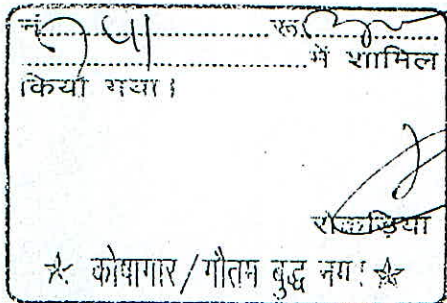 नं. रू.
में शामिल
किया गया।
रोकड़िया
☆ कोषागार/गौतम बुद्ध नगर ☆